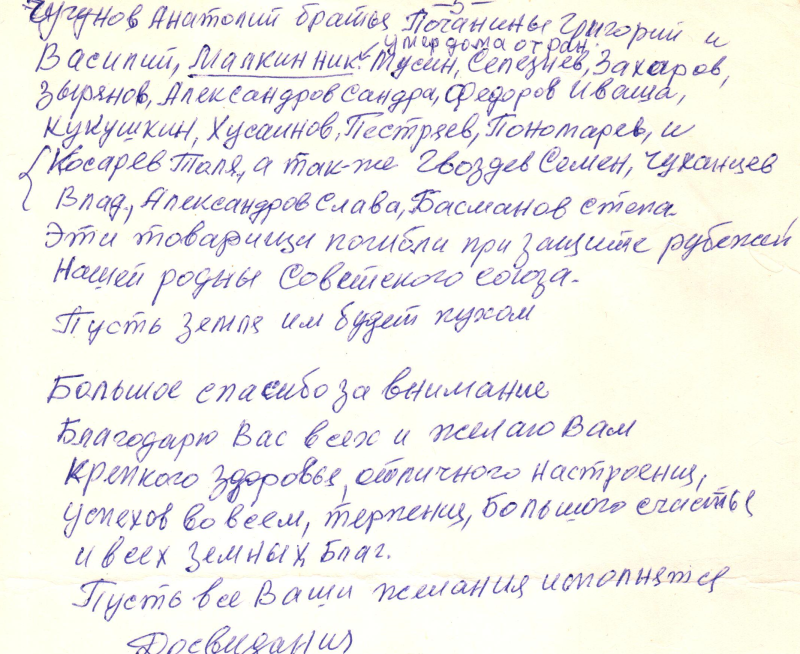 -5-
Чугунов Анатолий братья Почанины Григорий и
умер дома от ран.
Василий, Малкин Ник. Мусин, Селезнев, Захаров,
Зырянов, Александров Сандра, Федоров Иваша,
Кукушкин, Хусаинов, Пестряев, Пономарев, и
Косарев Толя, а так-же Гвоздев Семен, Чуханцев
Влад., Александров Слава, Басманов Степа
Эти товарищи погибли при защите рубежей
Нашей родны Советского союза.
Пусть земля им будет пухом
Большое спасибо за внимание
Благодарю Вас всех и желаю Вам
Крепкого здоровья, отличного настроения,
успехов во всем, терпения, большого счастья
и всех земных благ.
Пусть все Ваши желания исполнятся
Досвидания